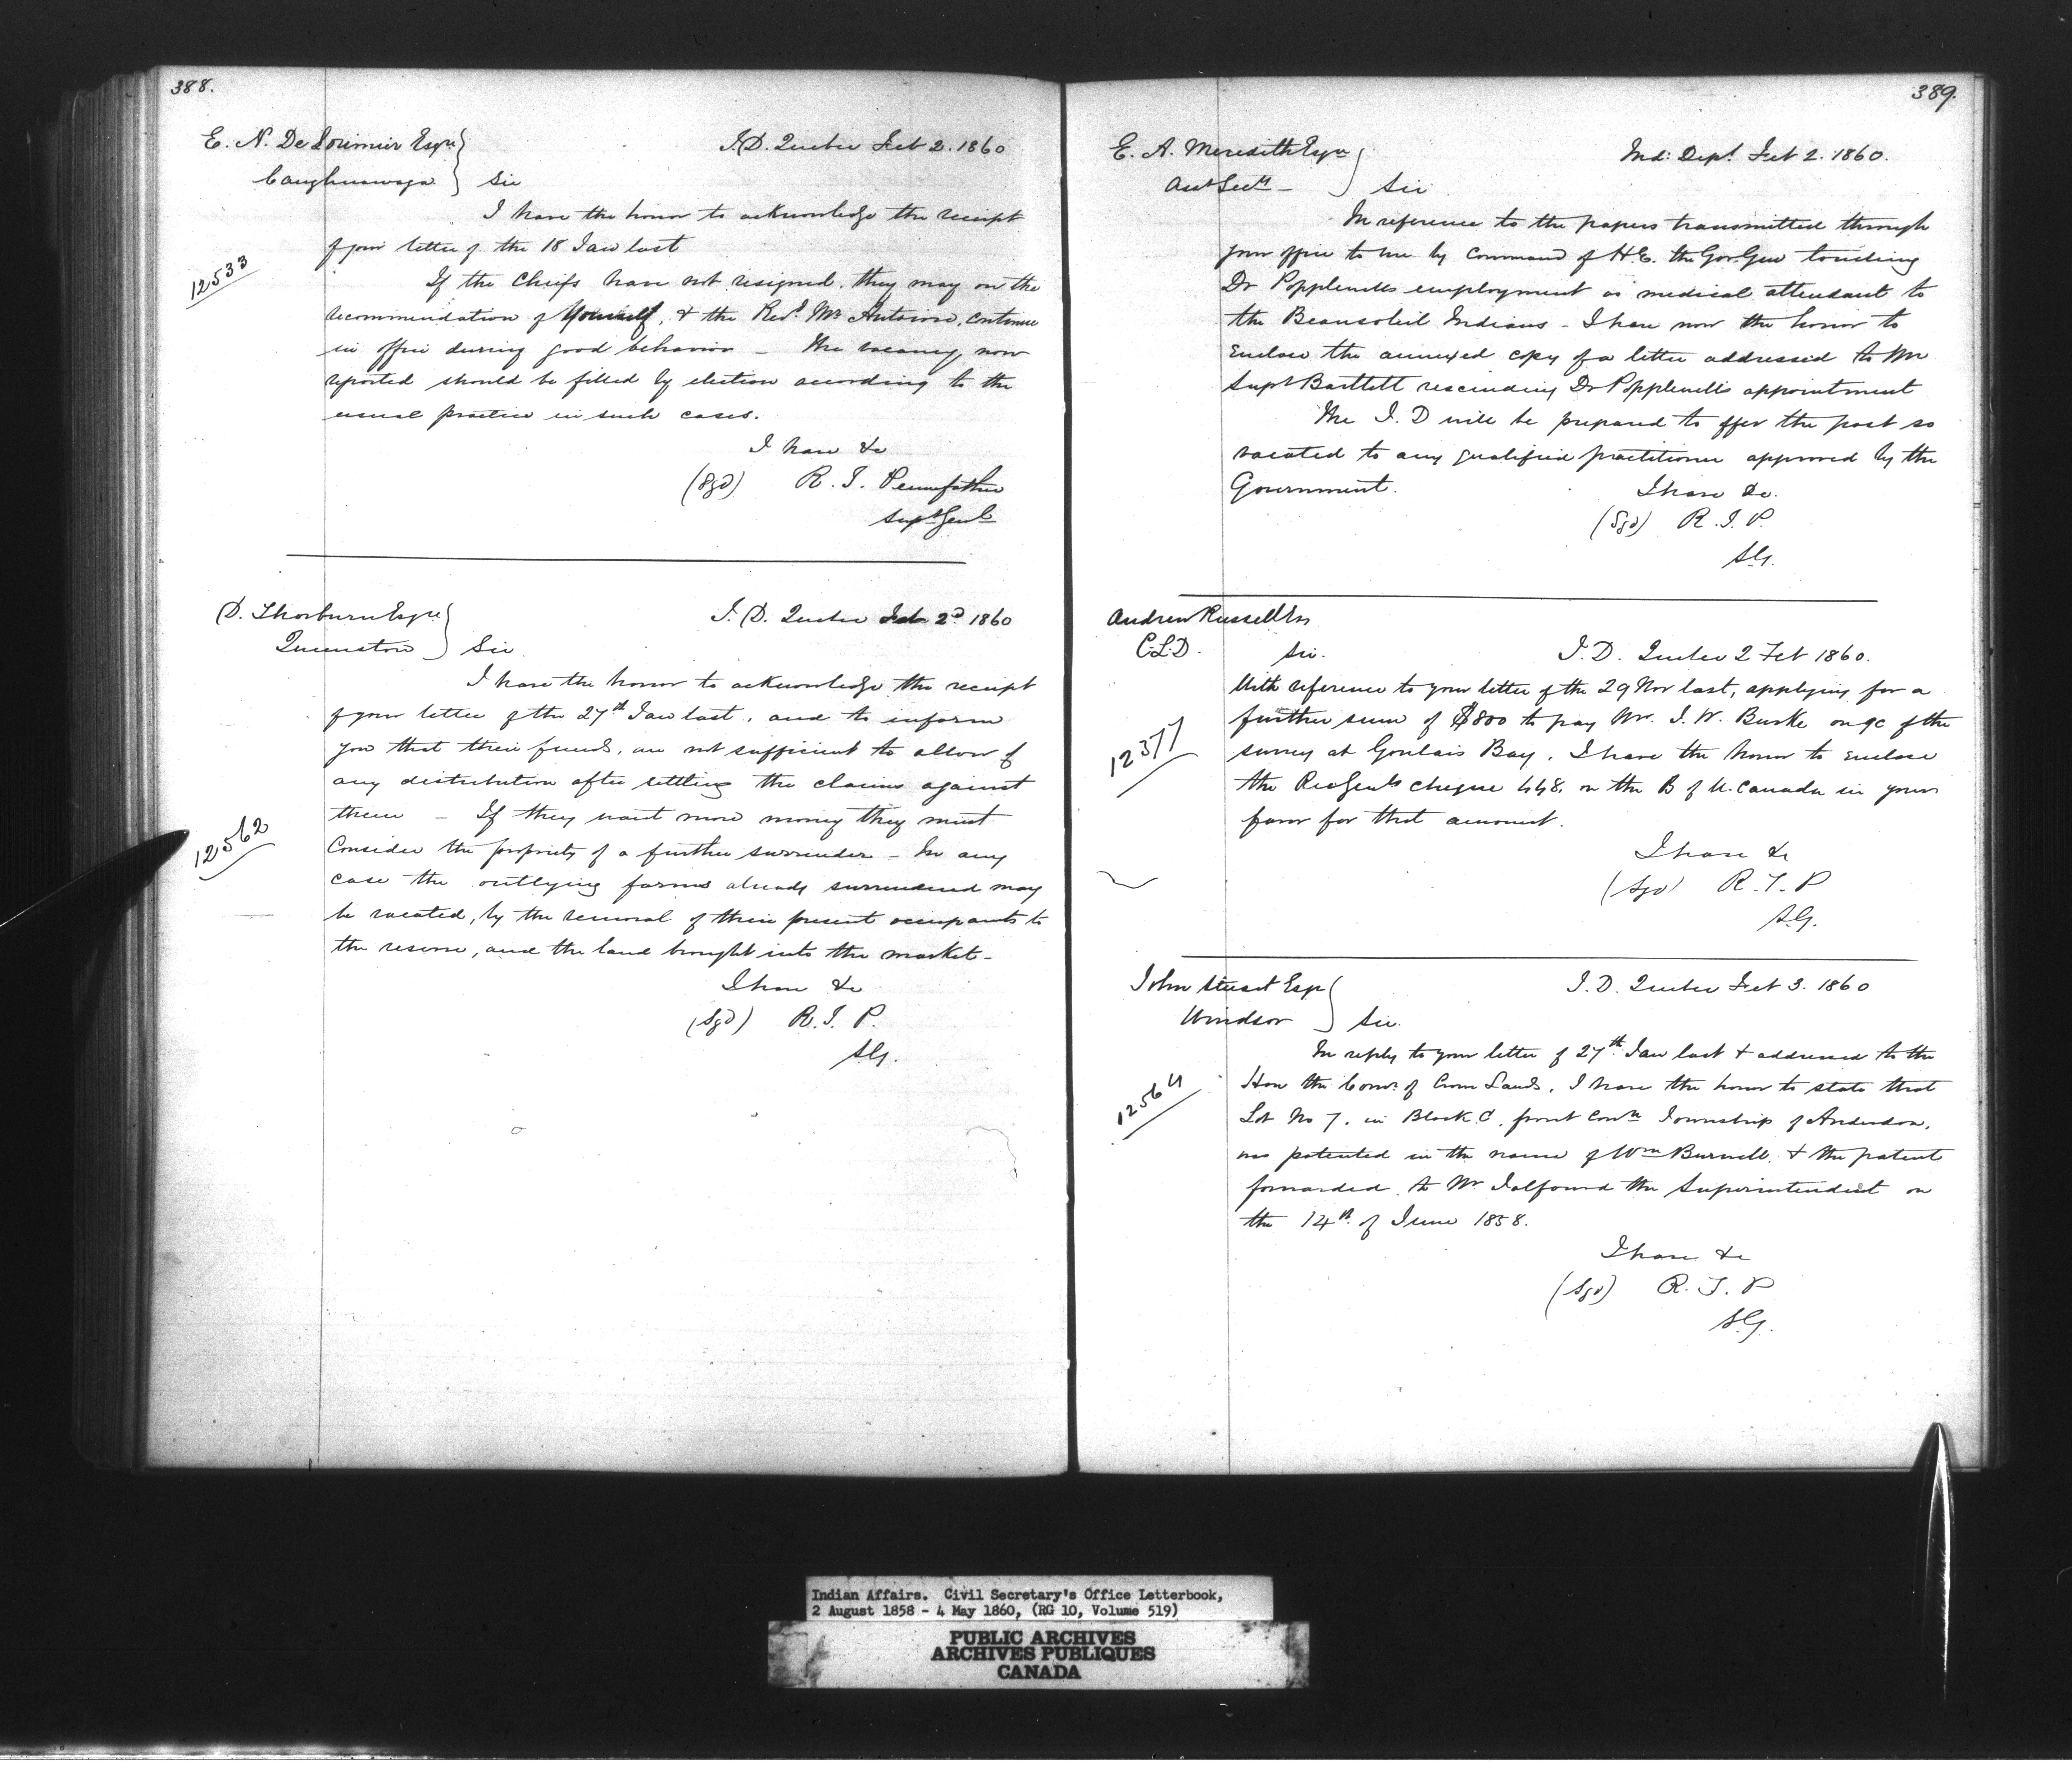 388.
E. N. De Lorimier Esqre
Caughnawaga
I.D. Quebec Feb 2. 1860
Sir
I have the honor to acknowledge the receipt
of your letter of the 18 Jan last
12533
If the Chiefs have not resigned, they may on the
recommendation of Yourself, & the Revd. Mr Antoine, continue
in office during good behavior — The vacancy now
reported should be filled by election according to the
usual practice in such cases.
I have &c
(Sgd) R. T. Pennefather
Supt Genl
D. Thorburn Esqre
Queenston
I. D. Quebec Feb 2d 1860
Sir
I have the honor to acknowledge the receipt
of your letter of the 27th Jan last, and to inform
you that their funds, are not sufficient to allow of
any distribution after settling the claims against
them — If they want more money they must
12562
Consider the propriety of a further surrender — In any
case the outlying farms already surrendered may
be vacated, by the removal of their present occupants to
the reserve, and the land brought into the market—
I have &c
(Sgd) R. T. P.
S.G.
389.
E. A. Meredith Esqre
Asst Secy —
Ind: Dept. Feb 2. 1860.
Sir
In reference to the papers transmitted through
your office to me by Command of H.E. the Gov. Gen touching
Dr Popplewells employment as medical attendant to
the Beausoleil Indians — I have now the honor to
Enclose the annexed copy of a letter addressed to Mr
Supt Bartlett rescinding Dr Popplewells appointment
The I. D will be prepared to offer the post so
vacated to any qualified practitioner approved by the
Government.
I have &c.
(Sgd) R. T. P.
S.G.
Andrew Russell Esq
C.L.D.
Sir.
I. D. Quebec 2 Feb 1860.
With reference to your letter of the 29 Nov last, applying for a
further sum of $800 to pay Mr. J. W. Burke on a/c of the
12377
survey at Goulais Bay, I have the honor to Enclose
the Rec Genls cheque 448. on the B of U. Canada in your
favor for that amount.
I have &c
(Sgd) R. T. P
S.G.
John Stuart Esqr
Windsor
I. D. Quebec Feb 3. 1860
Sir.
In reply to your letter of 27th. Jan last & addressed to the
12564
Hon the Comr. of Crown Lands, I have the honor to state that
Lot No 7. in Block C, front Conn Township of Anderdon,
was patented in the name of Wm Burwell, & the patent
forwarded to Mr Talfourd the Superintendent on
the 14th. of June 1858.
I have &c
(Sgd) R. T. P
S.G.
Indian Affairs. Civil Secretary's Office Letterbook,
2 August 1858 - 4 May 1860, (RG 10, Volume 519)
PUBLIC ARCHIVES
ARCHIVES PUBLIQUES
CANADA